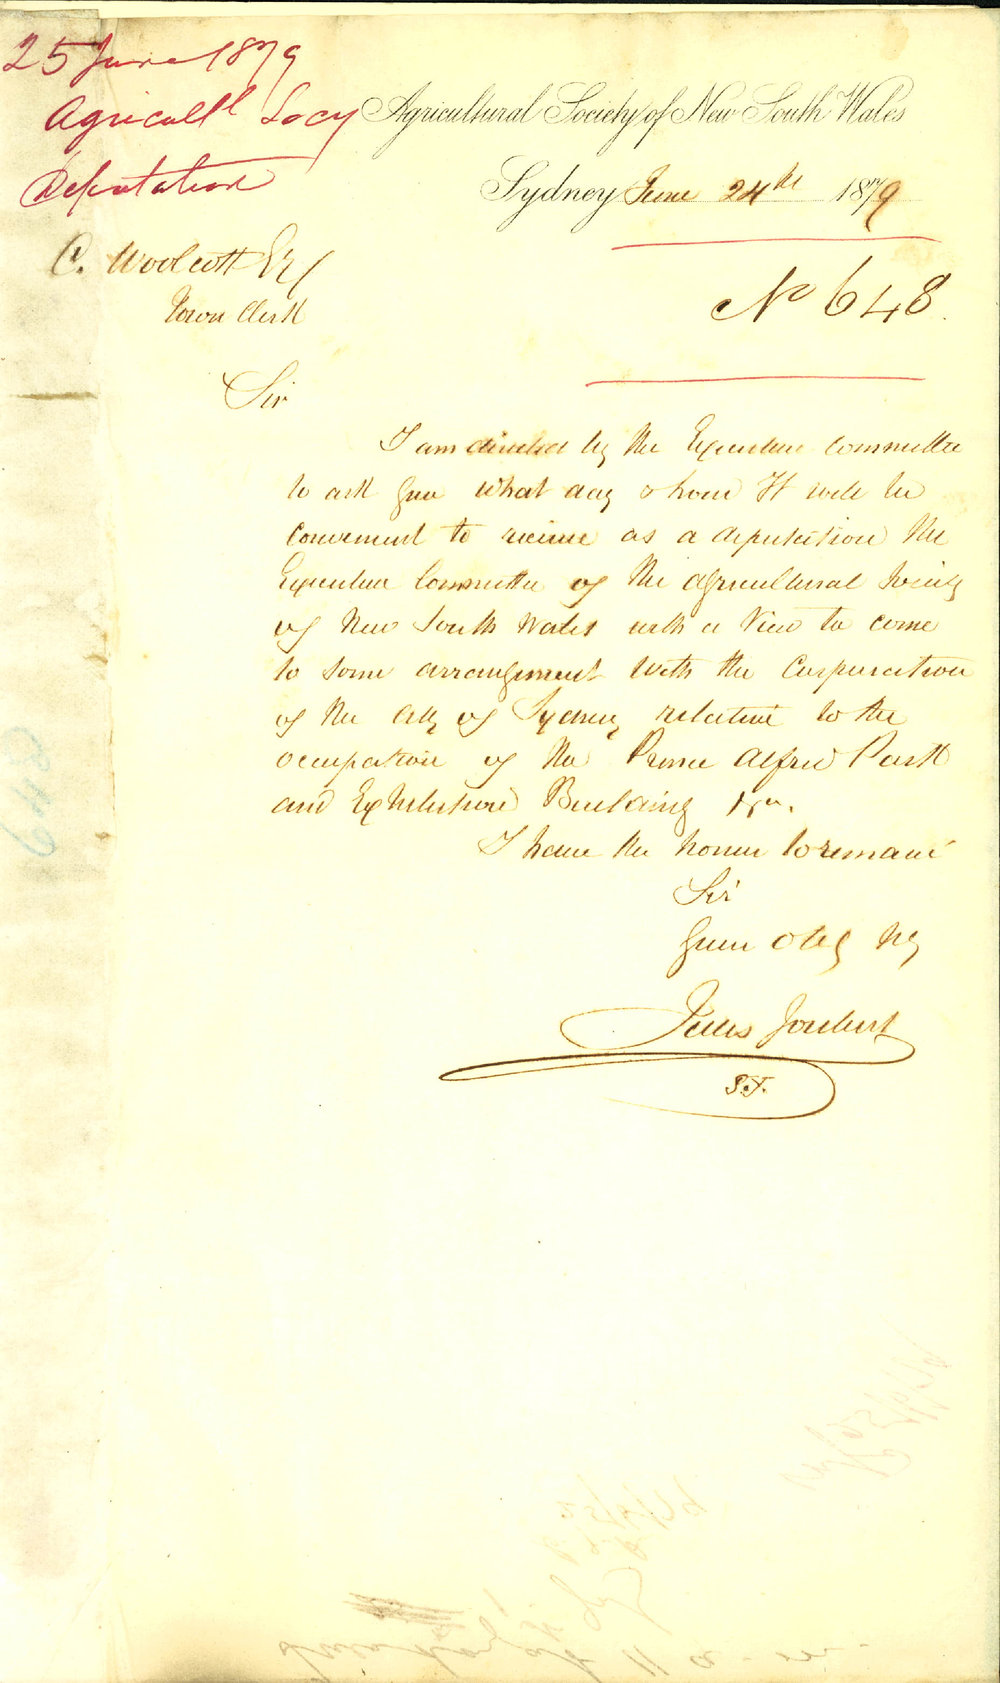 25 June 1879
Agricultl Socy
Deputation
Agricultural Society of New South Wales
Sydney June 24th 1879
No 648.
C. Woolcott Esq
Town Clerk
Sir
I am directed by the Executive Committee
to ask you what day & hour It will be
convenient to receive as a deputation the
Executive Committee of the Agricultural Society
of New South Wales with a View to come
to some arrangement with the Corporation
of the City of Sydney relative to the
occupation of the Prince Alfred Park
and Exhibition Building &ca.
I have the honor to remain
Sir
Your Obdt
Jules Joubert
at 11 a.m.